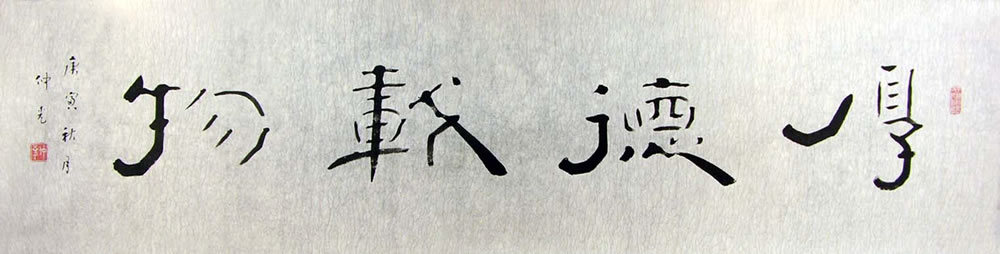 厚德載物
庚寅秋月
仲元